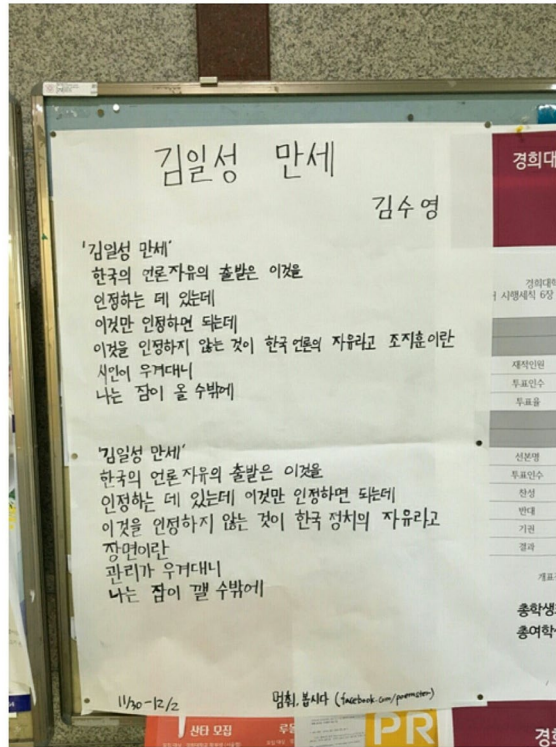 김일성 만세
김수영
'김일성 만세'
한국의 언론자유의 출발은 이것을
인정하는 데 있는데
이것만 인정하면 되는데
이것을 인정하지 않는 것이 한국 언론의 자유라고 조지훈이란
시인이 우겨대니
나는 잠이 올 수밖에
'김일성 만세'
한국의 언론자유의 출발은 이것을
인정하는 데 있는데 이것만 인정하면 되는데
이것을 인정하지 않는 것이 한국 정치의 자유라고
장면이란
관리가 우겨대니
나는 잠이 깰 수밖에
11/30-12/2
멈춰, 봅시다 (facebook.com/poemster)
경희대
경희대학
시행세칙 6장
재적인원
투표인수
투표율
선본명
투표인수
찬성
반대
기권
결과
개표
총학생
총여학
산타 모집
PR
경희